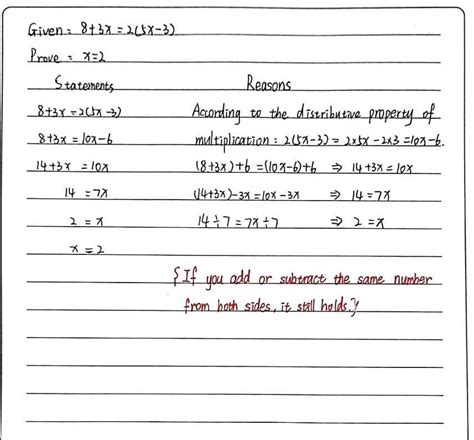 Given: 8+3x=2(5x-3)
Prove: x=2
Statements Reasons
8+3x=2(5x-3) According to the distributive property of
8+3x=10x-6 multiplication: 2(5x-3)=2x5x-2x3=10x-6.
14+3x=10x (8+3x)+6=(10x-6)+6 ⇒ 14+3x=10x
14=7x (14+3x)-3x=10x-3x ⇒ 14=7x
2=x 14÷7=7x÷7 ⇒ 2=x
x=2
{If you add or subtract the same number
from both sides, it still holds.}